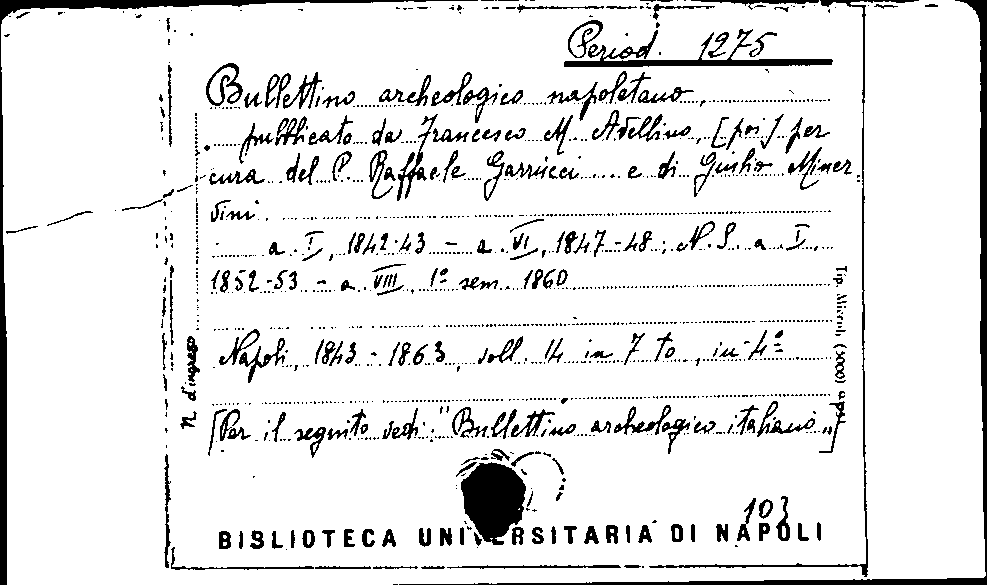 Period. 1275
Bullettino archeologico napoletano,
pubblicato da Francesco M. Avellino, [poi] per
cura del P. Raffaele Garrucci ... e di Giulio Miner-
vini.
a. I, 1842-43 - a. VI, 1847-48; N. S. a. I,
1852-53 - a. VIII, 1° sem. 1860
Napoli, 1843-1863, voll. 14 in 7 to., in-4°
[Per il seguito vedi: "Bullettino archeologico italiano„]
N. d'ingreso
Tip. Miccoli (5000)
103
BIBLIOTECA UNIVERSITARIA DI NAPOLI